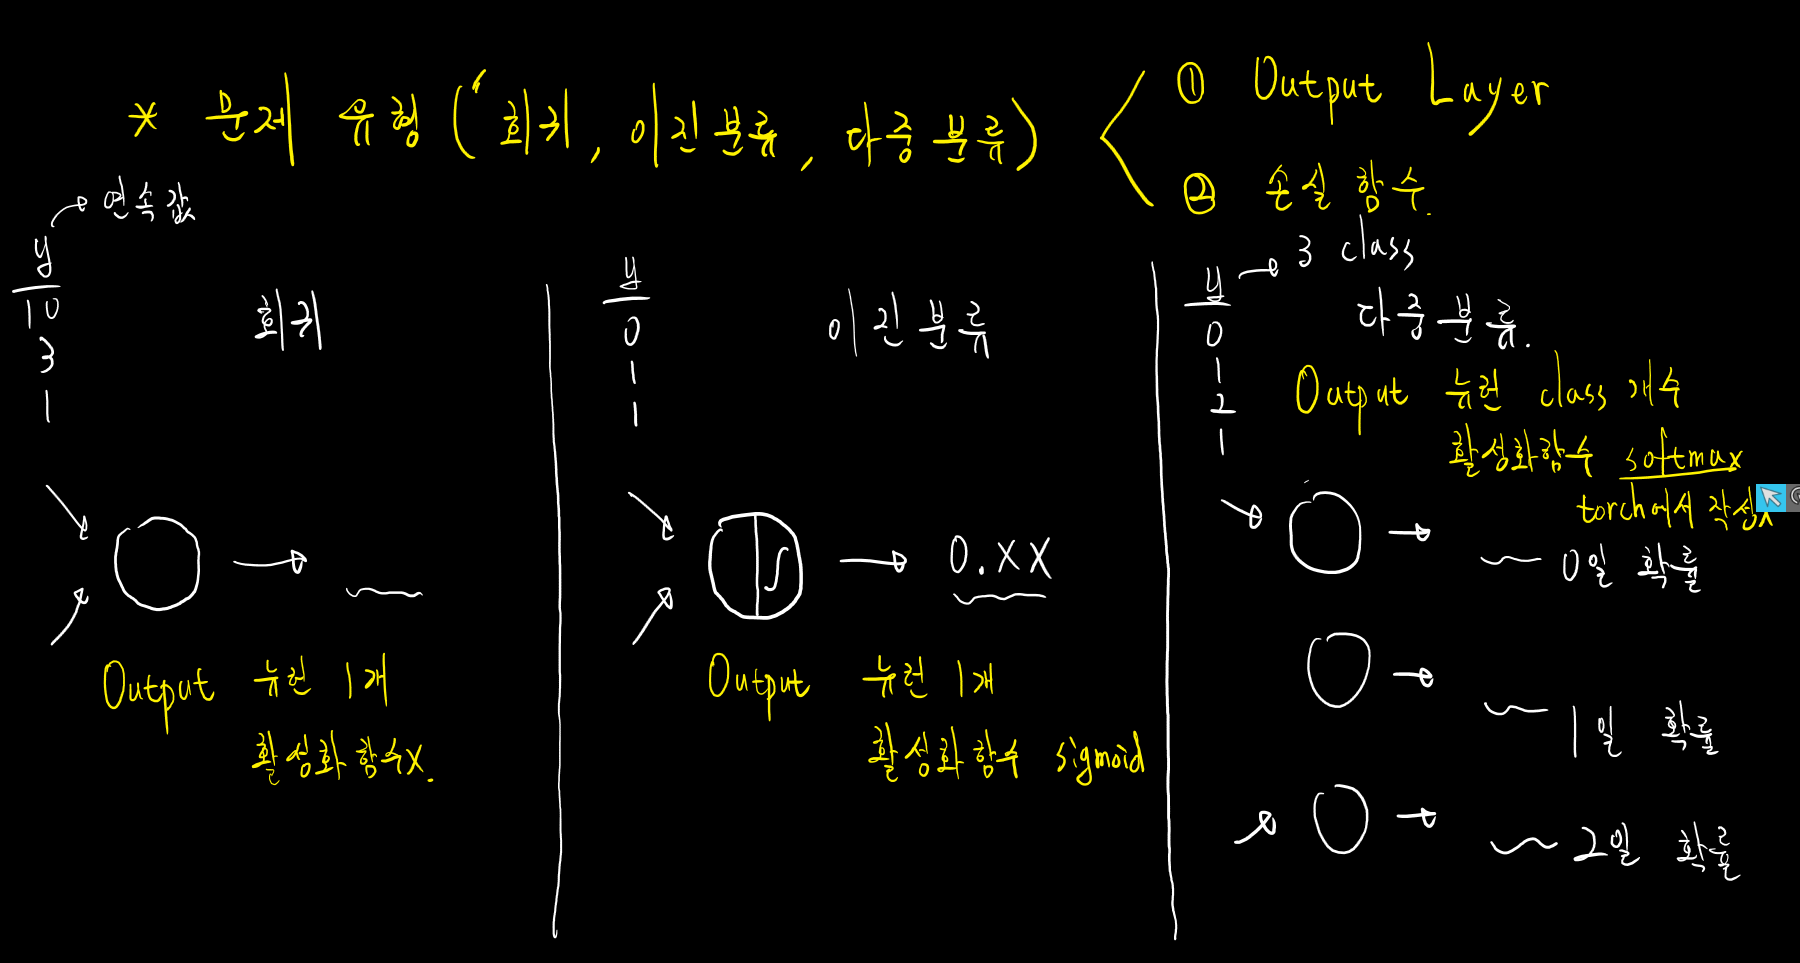 * 문제 유형 (회귀, 이진분류, 다중분류)
① Output Layer
② 손실 함수.
y → 연속값
10
3
1
회귀
Output 뉴런 1개
활성화함수X.
y
0
1
1
이진분류
0.XX
Output 뉴런 1개
활성화함수 sigmoid
y → 3 class
0
1
2
1
다중분류.
Output 뉴런 class 개수
활성화함수 softmax
torch에서 작성X
0일 확률
1일 확률
2일 확률